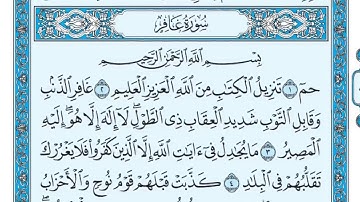 سُورَةُ غَافِرٍ
بِسْمِ اللَّهِ الرَّحْمَٰنِ الرَّحِيمِ
حمٓ ١ تَنزِيلُ الْكِتَٰبِ مِنَ اللَّهِ الْعَزِيزِ الْعَلِيمِ ٢ غَافِرِ الذَّنۢبِ
وَقَابِلِ التَّوْبِ شَدِيدِ الْعِقَابِ ذِى الطَّوْلِ ۖ لَآ إِلَٰهَ إِلَّا هُوَ ۖ إِلَيْهِ
الْمَصِيرُ ٣ مَا يُجَٰدِلُ فِىٓ ءَايَٰتِ اللَّهِ إِلَّا الَّذِينَ كَفَرُوا۟ فَلَا يَغْرُرْكَ
تَقَلُّبُهُمْ فِى الْبِلَٰدِ ٤ كَذَّبَتْ قَبْلَهُمْ قَوْمُ نُوحٍ وَالْأَحْزَابُ